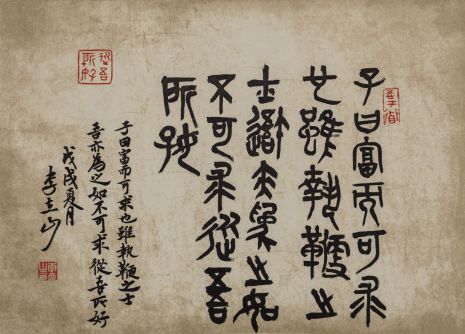 子曰富而可求
也雖執鞭之
士吾亦為之如
不可求從吾
所好
子曰富而可求也雖執鞭之士
吾亦為之如不可求從吾所好
戊戌夏月
李立山
从吾
所好